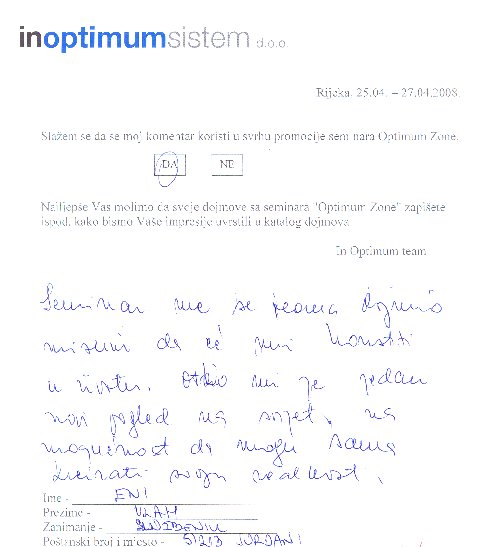 inoptimumsistem d.o.o.
Rijeka, 25.04. – 27.04.2008.
Slažem se da se moj komentar koristi u svrhu promocije seminara Optimum Zone.
DA NE
Najljepše Vas molimo da svoje dojmove sa seminara "Optimum Zone" zapišete
ispod, kako bismo Vaše impresije uvrstili u katalog dojmova
In Optimum team
Seminar me se veoma dojmio
mislim da će mi koristiti
u životu. Otkrio mi je jedan
novi pogled na svijet, na
mogućnost da mogu sama
kreirati svoju realnost.
Ime - ENI
Prezime - VLAH
Zanimanje -
Poštanski broj i mjesto - 51213 JURDANI